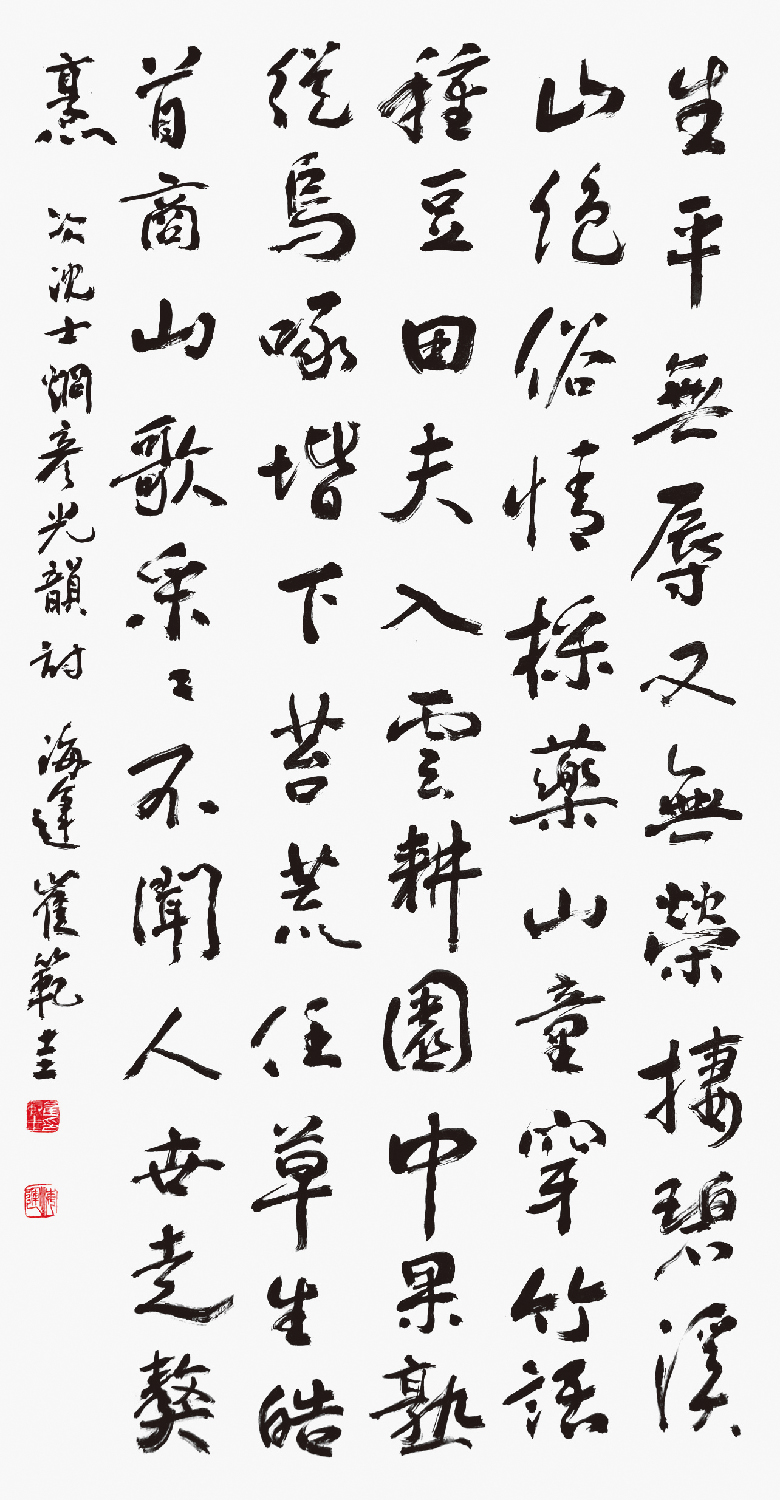 生平無辱又無榮棲碧溪
山絶俗情採藥山童穿竹語
種豆田夫入雲耕園中果熟
從烏啄堦下苔荒任草生皓
首商山歌采〻不聞人世走獒
烹 次沈士烱彦光韻 海 崔範圭